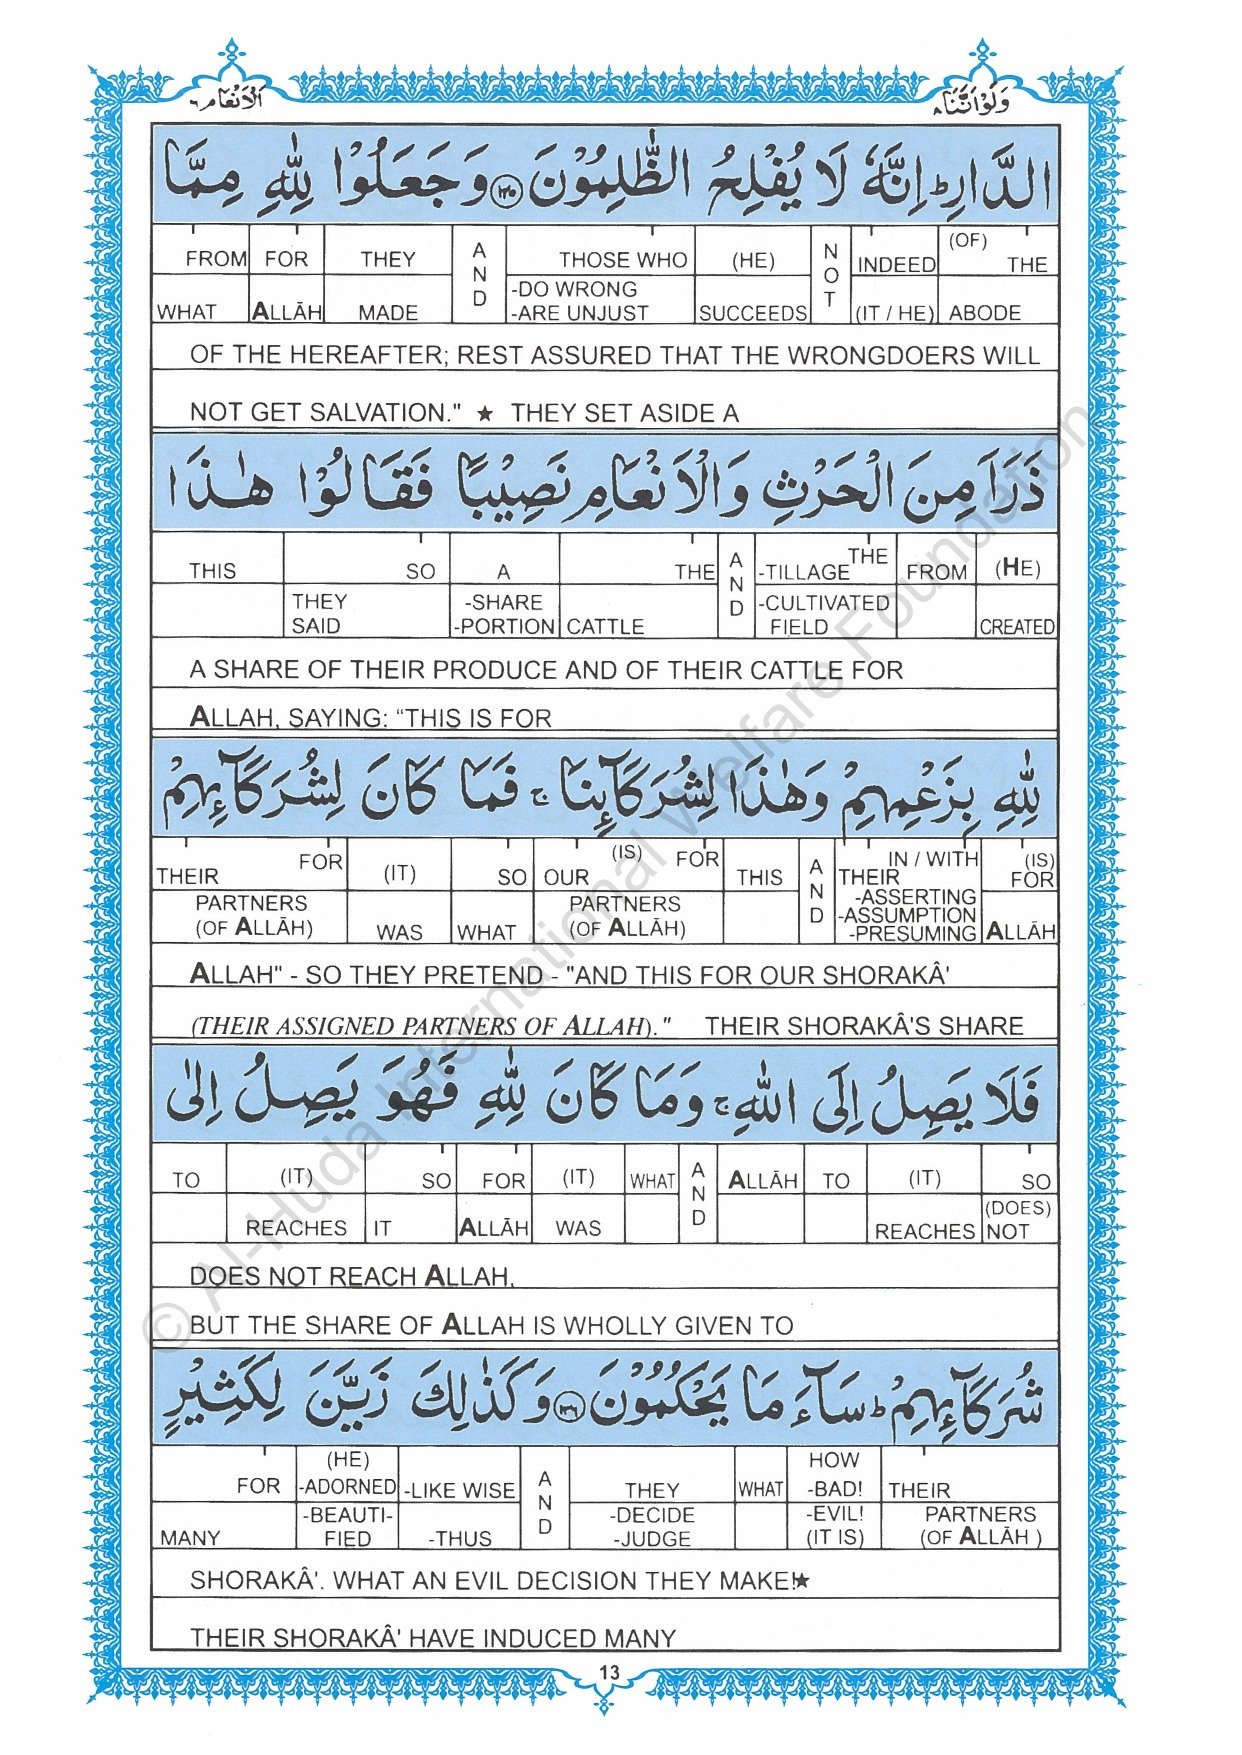 وَلَوْاَنَّنَا ٨
اَلْاَنْعَام ٦
الدَّارِ ؕ اِنَّهٗ لَا يُفْلِحُ الظّٰلِمُوْنَ ۝١٣٥ وَ جَعَلُوْا لِلّٰهِ مِمَّا
FROM FOR THEY AND THOSE WHO (HE) NOT INDEED (OF) THE
WHAT ALLĀH MADE -DO WRONG -ARE UNJUST SUCCEEDS (IT / HE) ABODE
OF THE HEREAFTER; REST ASSURED THAT THE WRONGDOERS WILL
NOT GET SALVATION." ★ THEY SET ASIDE A
ذَرَاَ مِنَ الْحَرْثِ وَالْاَنْعَامِ نَصِيْبًا فَقَالُوْا هٰذَا
THIS SO A THE AND -TILLAGE THE FROM (HE)
THEY SAID -SHARE -PORTION CATTLE -CULTIVATED FIELD CREATED
A SHARE OF THEIR PRODUCE AND OF THEIR CATTLE FOR
ALLAH, SAYING: “THIS IS FOR
لِلّٰهِ بِزَعْمِهِمْ وَهٰذَا لِشُرَكَآئِنَا ۚ فَمَا كَانَ لِشُرَكَآئِهِمْ
THEIR FOR (IT) SO OUR (IS) FOR THIS AND IN / WITH THEIR (IS) FOR
PARTNERS (OF ALLĀH) WAS WHAT PARTNERS (OF ALLĀH) -ASSERTING -ASSUMPTION -PRESUMING ALLĀH
ALLAH" - SO THEY PRETEND - "AND THIS FOR OUR SHORAKÂ'
(THEIR ASSIGNED PARTNERS OF ALLAH)." THEIR SHORAKÂ'S SHARE
فَلَا يَصِلُ اِلَى اللّٰهِ ۚ وَمَا كَانَ لِلّٰهِ فَهُوَ يَصِلُ اِلٰى
TO (IT) SO FOR (IT) WHAT AND ALLĀH TO (IT) SO
REACHES IT ALLĀH WAS REACHES (DOES) NOT
DOES NOT REACH ALLAH,
BUT THE SHARE OF ALLAH IS WHOLLY GIVEN TO
شُرَكَآئِهِمْ ؕ سَآءَ مَا يَحْكُمُوْنَ ۝١٣٦ وَكَذٰلِكَ زَيَّنَ لِكَثِيْرٍ
FOR (HE) -ADORNED -LIKE WISE AND THEY WHAT HOW -BAD! THEIR
MANY -BEAUTI-FIED -THUS -DECIDE -JUDGE -EVIL! (IT IS) PARTNERS (OF ALLĀH )
SHORAKÂ'. WHAT AN EVIL DECISION THEY MAKE!★
THEIR SHORAKÂ' HAVE INDUCED MANY
13
© Al-Huda International Welfare Foundation